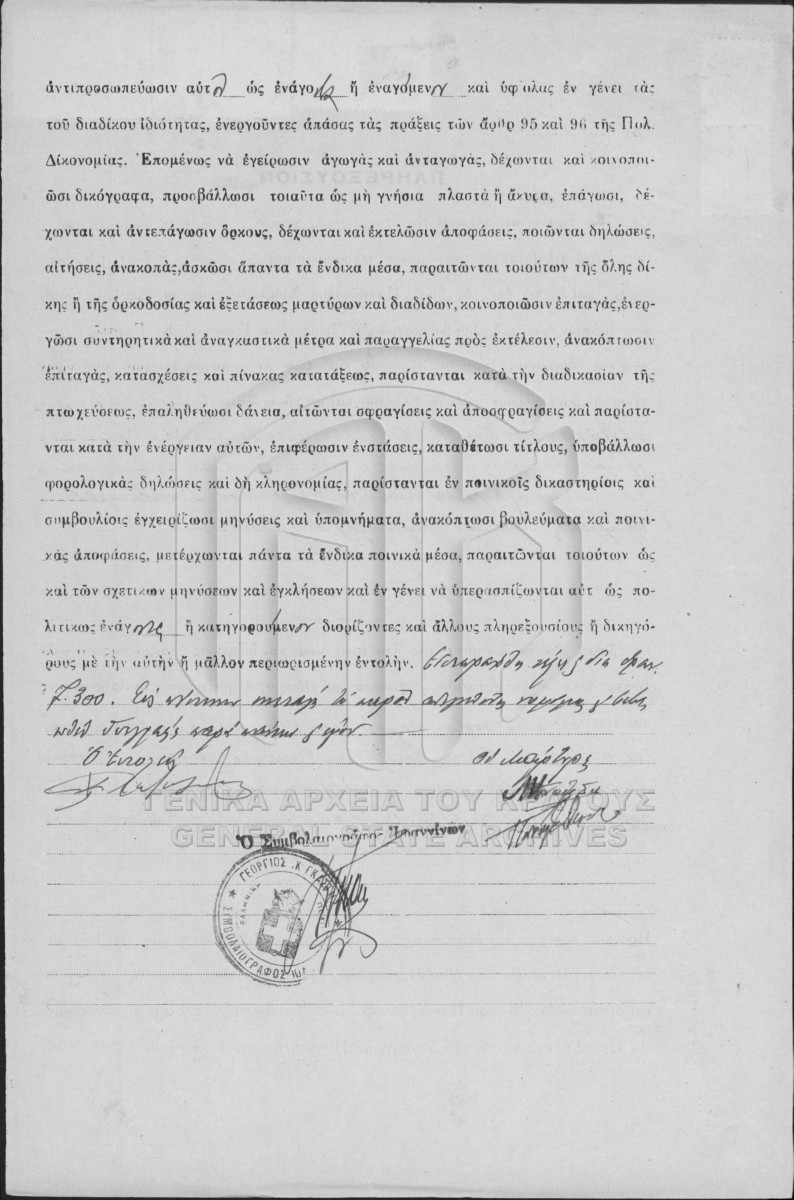 ἀντιπροσωπεύωσιν αὐτ ὡς ἐνάγο ἢ ἐναγόμενον καὶ ὑφ ὅλας ἐν γένει τὰς
τοῦ διαδίκου ἰδιότητας, ἐνεργοῦντες ἁπάσας τὰς πράξεις τῶν ἄρθρ 95 καὶ 96 τῆς Πολ.
Δικονομίας. Ἑπομένως νὰ ἐγείρωσιν ἀγωγὰς καὶ ἀνταγωγὰς, δέχωνται καὶ κοινοποι-
ῶσι δικόγραφα, προσβάλλωσι τοιαῦτα ὡς μὴ γνήσια πλαστὰ ἢ ἄκυρα, ἐπάγωσι, δέ-
χωνται καὶ ἀντεπάγωσιν ὅρκους, δέχωνται καὶ ἐκτελῶσιν ἀποφάσεις, ποιῶνται δηλώσεις,
αἰτήσεις, ἀνακοπὰς, ἀσκῶσι ἅπαντα τὰ ἔνδικα μέσα, παραιτῶνται τοιούτων τῆς ὅλης δί-
κης ἢ τῆς ὁρκοδοσίας καὶ ἐξετάσεως μαρτύρων καὶ διαδίδων, κοινοποιῶσιν ἐπιταγὰς, ἐνερ-
γῶσι συντηρητικὰ καὶ ἀναγκαστικὰ μέτρα καὶ παραγγελίας πρὸς ἐκτέλεσιν, ἀνακόπτωσιν
ἐπιταγὰς, κατασχέσεις καὶ πίνακας κατατάξεως, παρίστανται κατὰ τὴν διαδικασίαν τῆς
πτωχεύσεως, ἐπαληθεύωσι δάνεια, αἰτῶνται σφραγίσεις καὶ ἀποσφραγίσεις καὶ παρίστα-
νται κατὰ τὴν ἐνέργειαν αὐτῶν, ἐπιφέρωσιν ἐνστάσεις, καταθέτωσι τίτλους, ὑποβάλλωσι
φορολογικὰς δηλώσεις καὶ δὴ κληρονομίας, παρίστανται ἐν ποινικοῖς δικαστηρίοις καὶ
συμβουλίοις ἐγχειρίζωσι μηνύσεις καὶ ὑπομνήματα, ἀνακόπτωσι βουλεύματα καὶ ποινι-
κὰς ἀποφάσεις, μετέρχωνται πάντα τὰ ἔνδικα ποινικὰ μέσα, παραιτῶνται τοιούτων ὡς
καὶ τῶν σχετικων μηνύσεων καὶ ἐγκλήσεων καὶ ἐν γένει νὰ ὑπερασπίζωνται αὐτ ὡς πο-
λιτικως ἐνάγοντα ἢ κατηγορούμενον διορίζοντες καὶ ἄλλους πληρεξουσίους ἢ δικηγό-
ρους μὲ τὴν αὐτὴν ἢ μᾶλλον περιωρισμένην ἐντολὴν.
300. Εἰς
Ὁ Ἐντολεὺς οἱ Μάρτυρες
ΓΕΝΙΚΑ ΑΡΧΕΙΑ ΤΟΥ ΚΡΑΤΟΥΣ
GENERAL STATE ARCHIVES
Ὁ Συμβολαιογράφος Ἰωαννίνων
ΓΕΩΡΓΙΟΣ Κ
ΣΥΜΒΟΛΑΙΟΓΡΑΦΟΣ ΙΩΑ